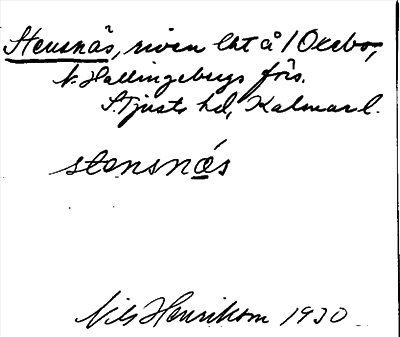 Stensnäs, riven lht å 1 Ocebo,
N. Hallingebergs förs.
S. Tjusts hd, Kalmar l.
stensnä́s
Nils Henrikson 1930